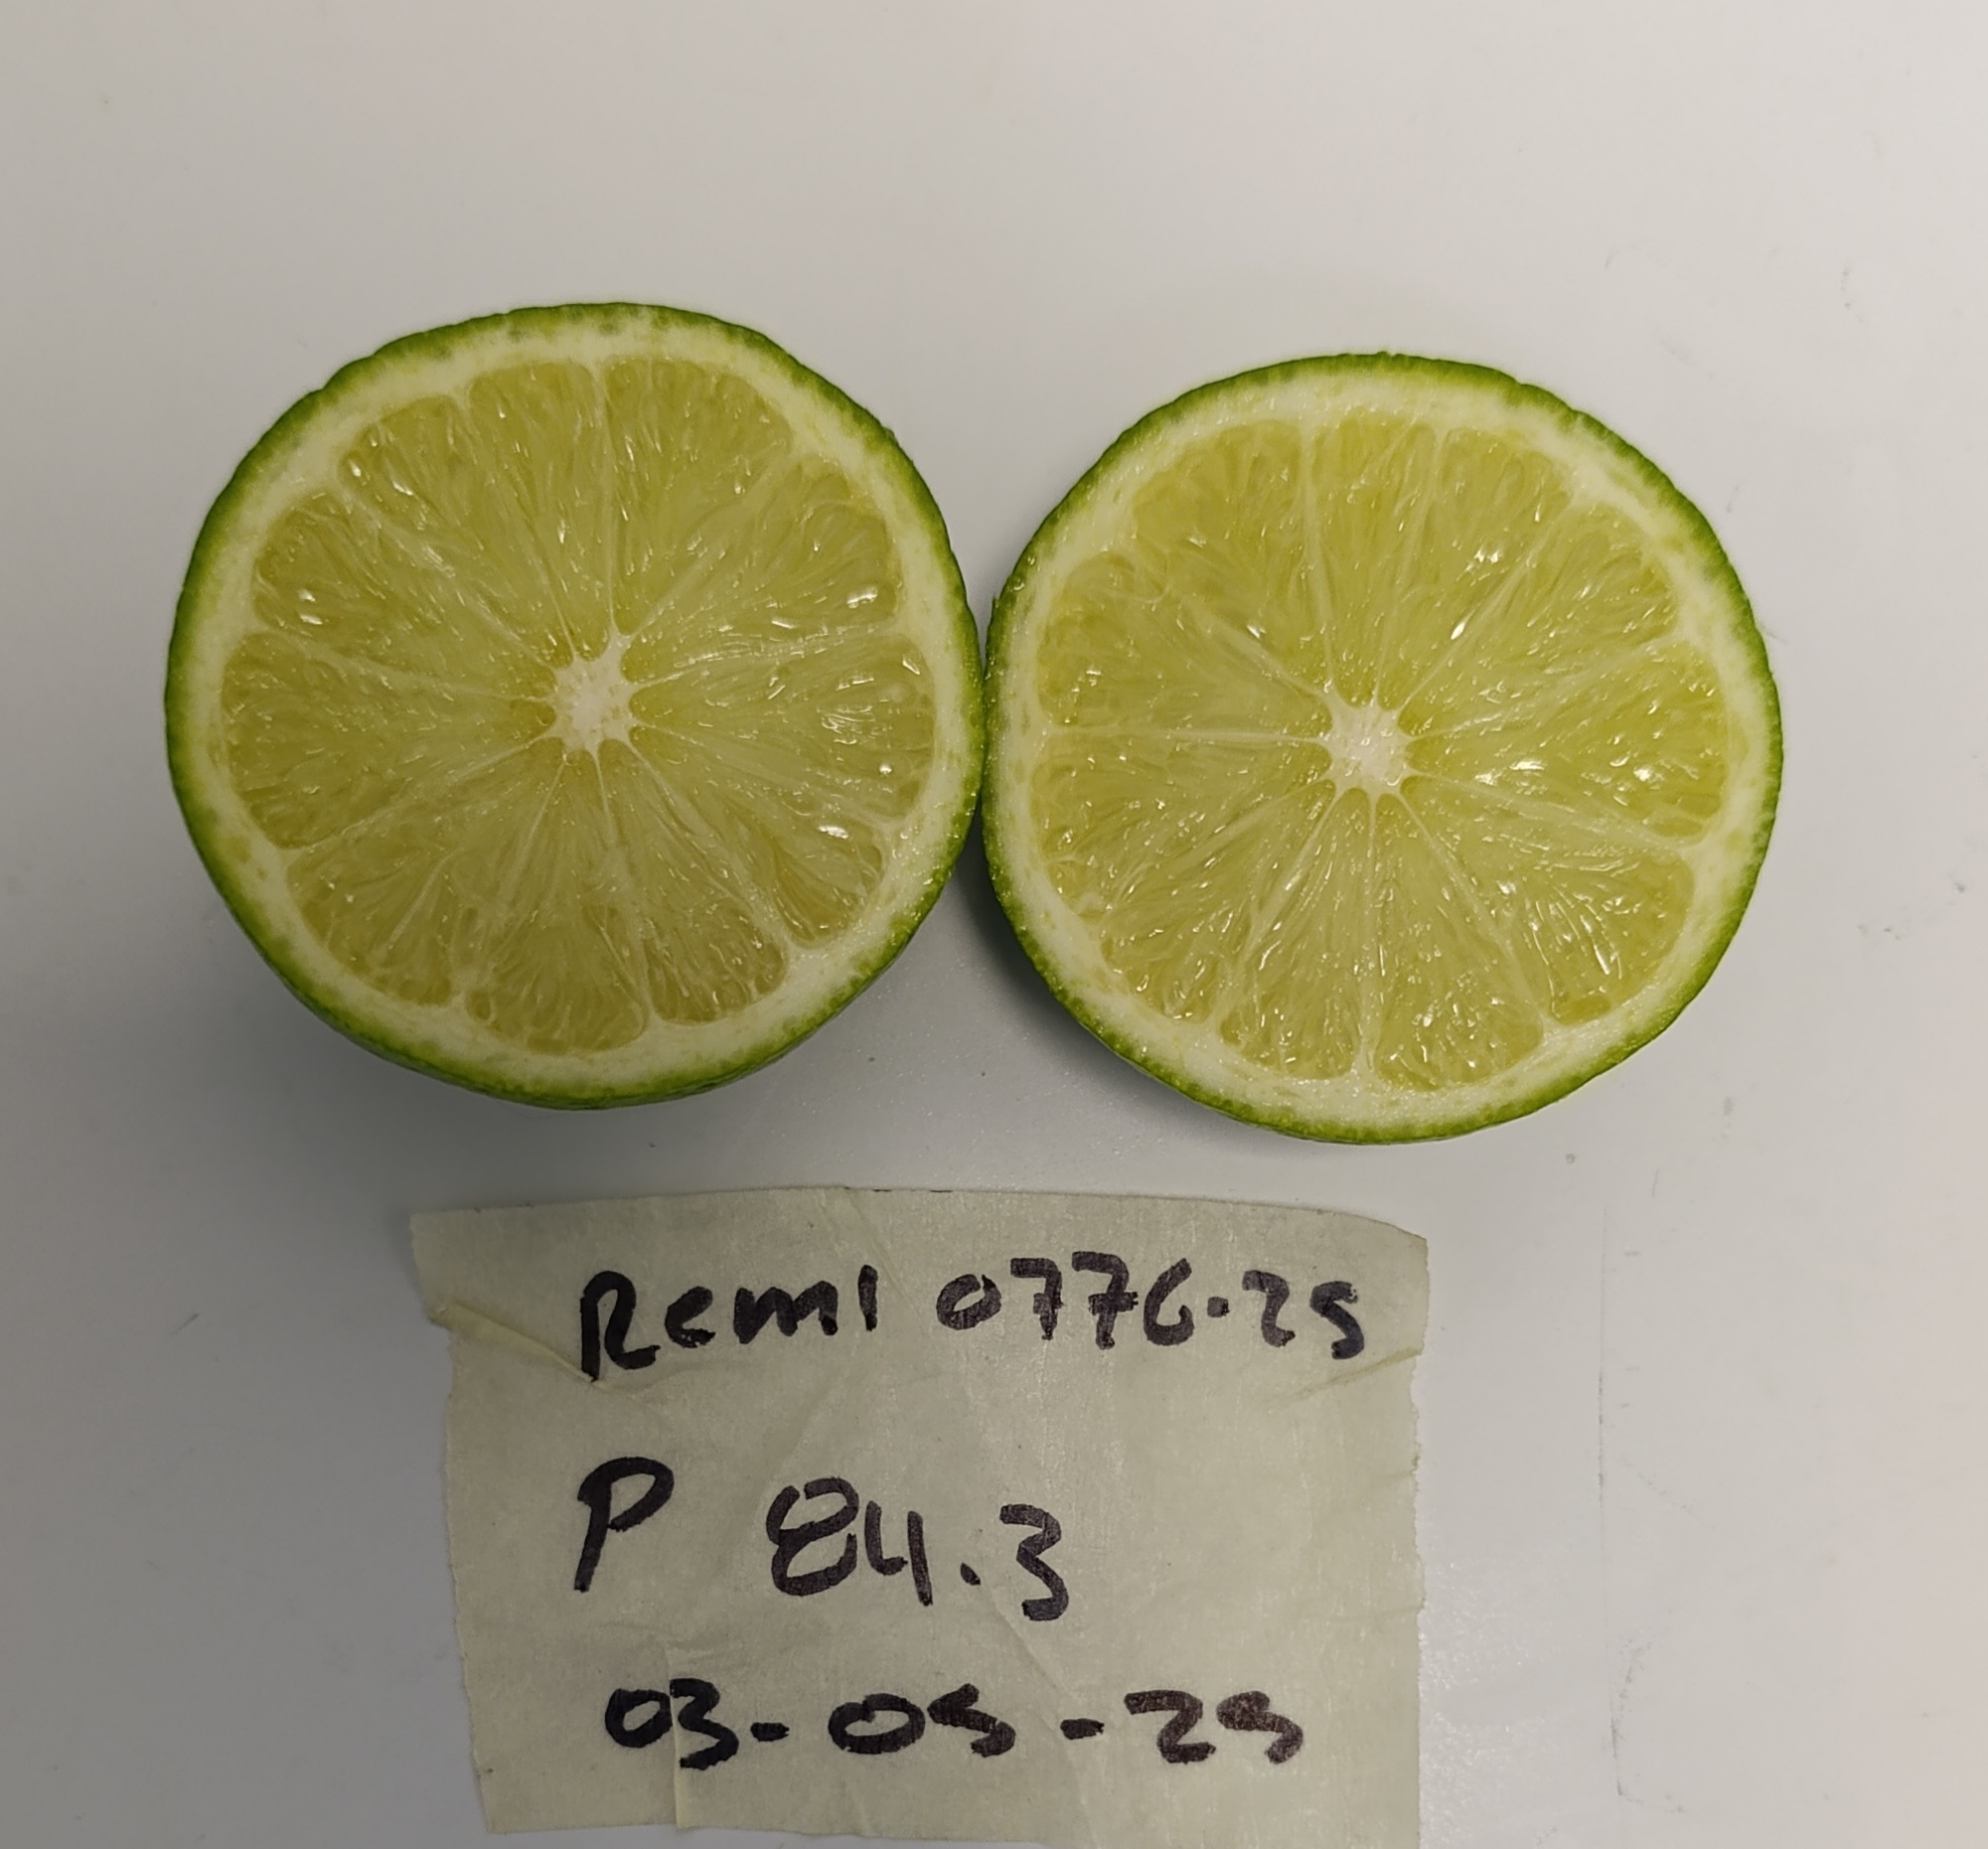 Remi 0776-25
P 84.3
03-05-25